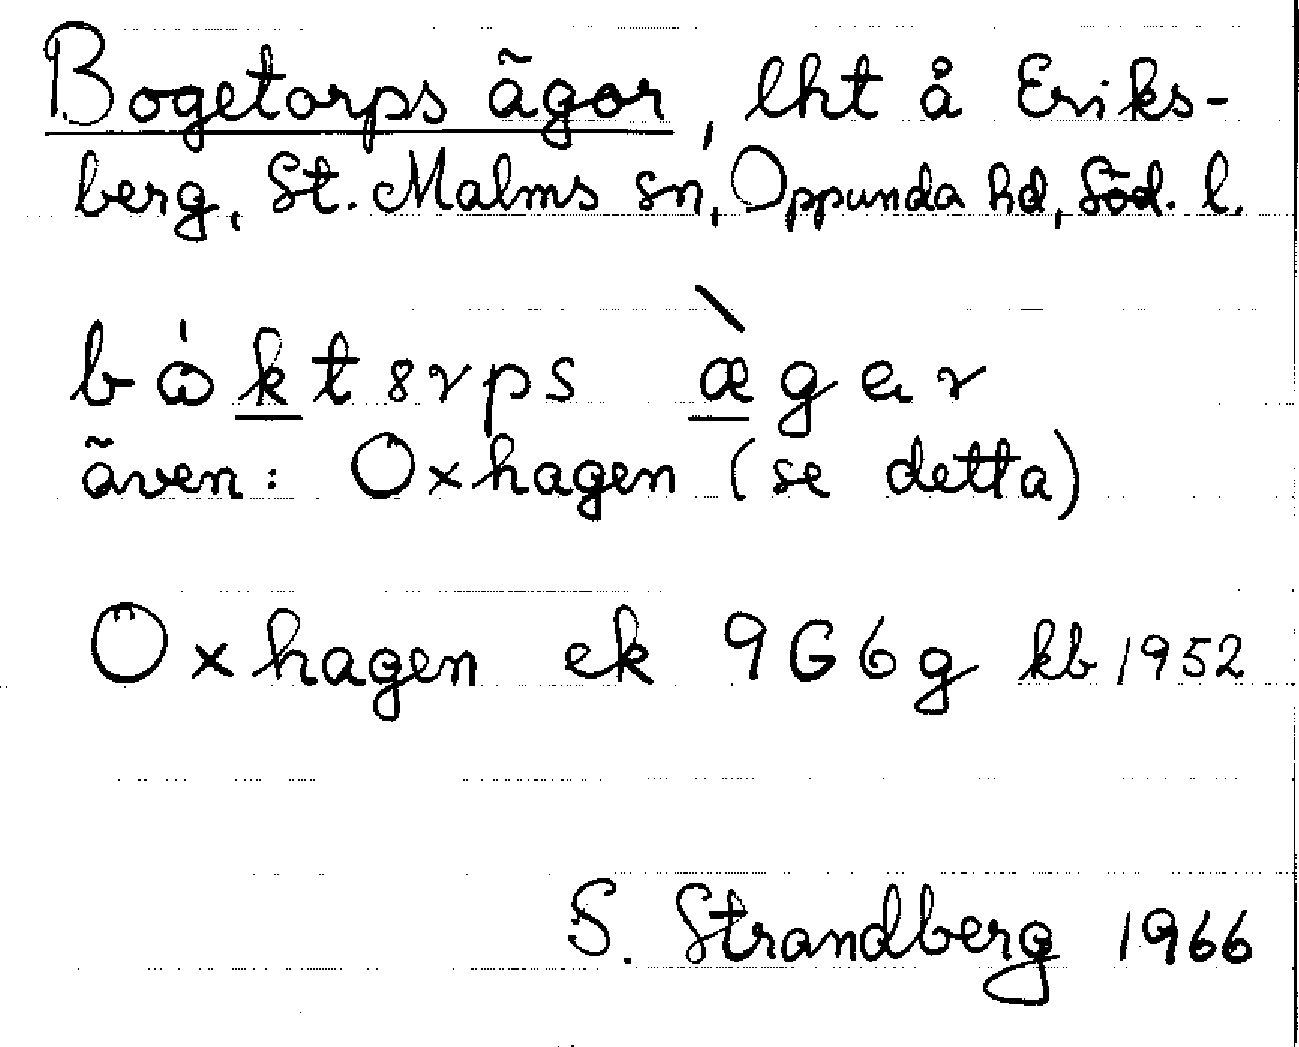 Bogetorps ägor, lht å Eriks-
berg, St. Malms sn, Oppunda hd, Söd. l.
bωktɞrps ægar
även: Oxhagen (se detta)
Oxhagen ek 9G6g kb 1952
S. Strandberg 1966